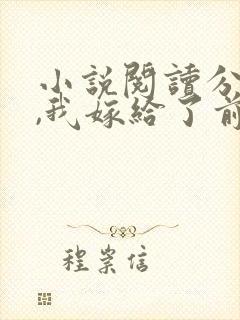 小說閱讀分
,我嫁給了前
程崇信